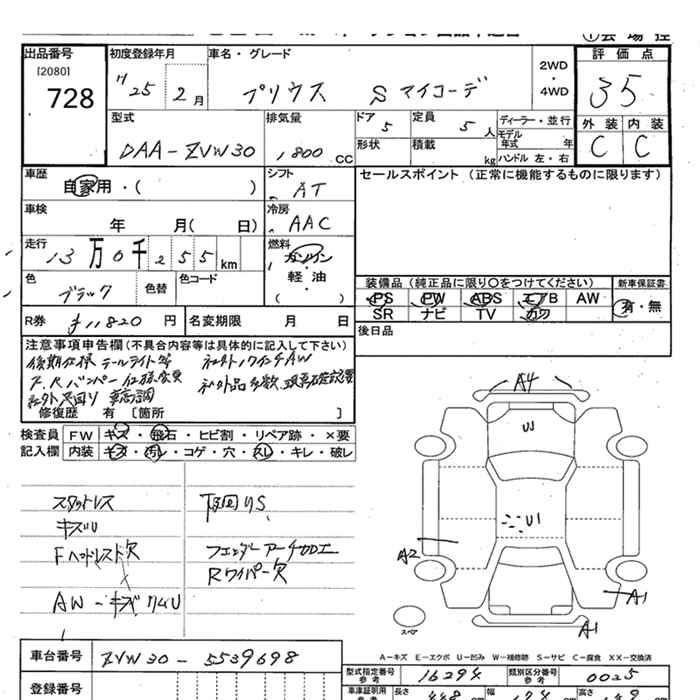 ①会場控
出品番号 [2080] 728
初度登録年月 H25年 2月
車名・グレード プリウス S マイコーデ
2WD ・ 4WD
評価点 35
外装 C 内装 C
型式 DAA-ZVW30
排気量 1,800 CC
ドア 5 形状
定員 5人 積載 kg
ディーラー・並行
モデル年式 年
ハンドル 左・右
車歴 自家用・( )
シフト AT
セールスポイント (正常に機能するものに限ります)
車検 年 月( 日)
冷房 AAC
走行 13万0千255km
燃料 ガソリン 軽・油 ( )
色 ブラック 色替 色コード
装備品 (純正品に限り○をつけてください) 新車保証書
PS PW ABS エアB AW 有・無
SR ナビ TV カワ
R券 ¥11,820 円 名変期限 月 日
後日品
注意事項申告欄(不具合内容等は具体的に記入して下さい)
後期仕様 テールライト
F,Rバンパー仕様変更 社外品多数
社外足回り 車高調
修復歴 有 [箇所 ]
検査員 FW キズ・飛石・ヒビ割・リペア跡・×要
記入欄 内装 キズ・汚レ・コゲ・穴・スレ・キレ・破レ
スタットレス 下回りS
キズU
Fヘットレスト欠 フェンダーアーチ加工
Rワイパー欠
AW-キズリムU
A4
U
U1
A2
A1
A1
スペア
A-キズ E-エクボ U-凹み W-補修跡 S-サビ C-腐食 XX-交換済
車台番号 ZVW30-5539698
型式指定番号 参考 16294 類別区分番号 参考 0025
登録番号
車庫証明用 参考 長さ 448 cm 幅 174 cm 高さ 149